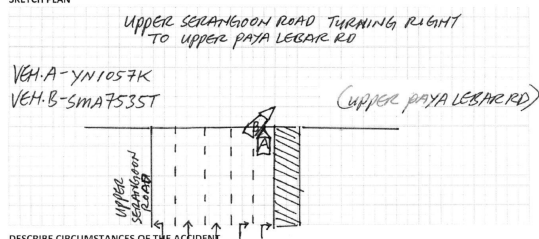 SKETCH PLAN
UPPER SERANGOON ROAD TURNING RIGHT
TO UPPER PAYA LEBAR RD
VEH.A-YN1057K
VEH.B-SMA7535T
(UPPER PAYA LEBAR RD)
B
A
UPPER
SERANGOON
ROAD
DESCRIBE CIRCUMSTANCES OF THE ACCIDENT